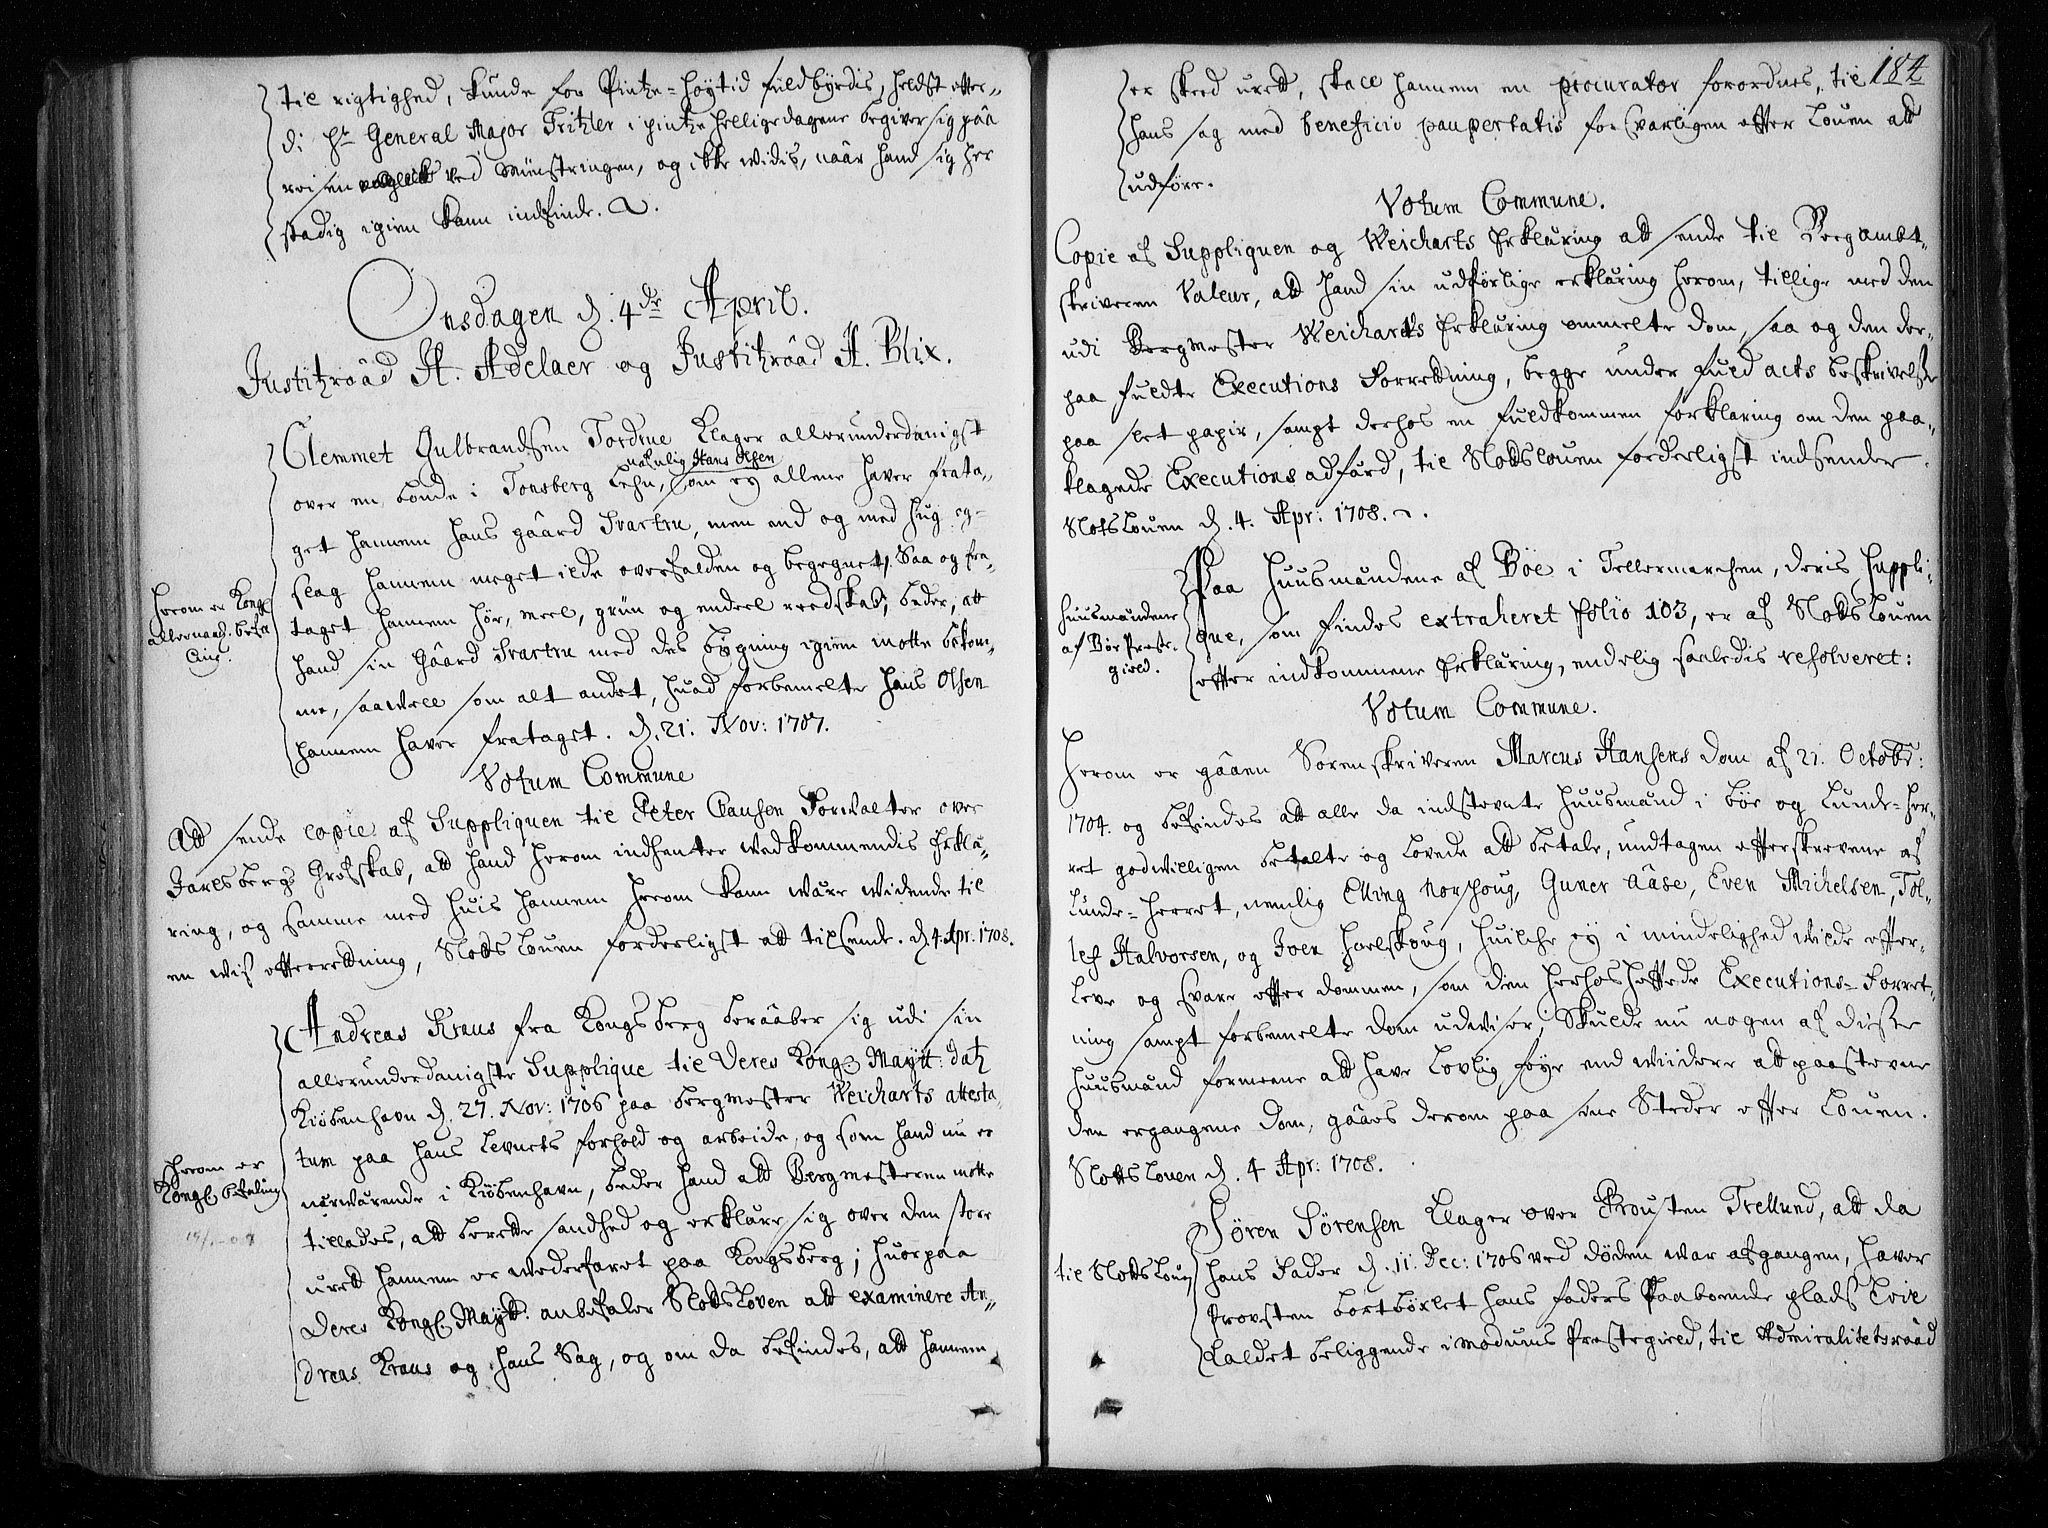 til rigtighed, kunde for Pintze-Høytid fuldbyrdis, heldst effter-
di Hr General Major Tritzler i pintze helligedagene begiver sig paa
reisen ved Mönstringen, og ikke widis, naar hand sig her
stadig igien kann indfinde.
Onsdagen d. 4de April.
Justitzraad H. Adelaer og Justitzraad H. Blix.
Clemmet Gulbrandsen Tordrue klager allerunderdanigst
nafnlig Hans Olsen
over en bonde i Tonsberg Lehn, som ey allene haver frata-
get hannem hans gaard Svartru, men end og med hug og
slag hannem meget ilde overfalden og begegnet, Saa og fra-
taget hannem hör, meel, grün og endeel reedskab, beder, att
hand sin Gaard Svartru med des bygning igien motte bekom-
me, saawell som alt andet, huad forbemelte Hans Olsen
hannem haver frataget. d. 21. Nov: 1707.
Herom er Kongl
allernaad. befal
Votum Commune
Att sende copie af Suppliquen til Peter Clausen Forwalter over
Jarlsbergs Grefskab, att hand herom indhenter wedkommendis Erklæ-
ring, og samme med huis hannem herom kann wære widende til
en wis efterretning, Slotsloven forderligst att tilsende. d. 4. Apr: 1708.
Andreas Kraus fra Kongsberg beraaber sig udi sin
allerunderdanigste Supplique til Deres Kongl. Maytt: datz
Kiöbenhavn d. 27. Nov: 1706 paa bergmester Weicharts attesta-
tum paa hans levnets forhold og arbeide, og som hand nu er
nærwærende i Kiöbenhavn, beder hand att Bergmesteren motte
tillades, att berette sandhed og erklære sig over den store
urett hannem er wederfaret paa Kongsberg; huorpaa
Deres Kongl. Maytt: anbefaler Slottsloven att examinere An-
dreas Kraus og hans Sag, og om da befindes, att hannem
Herom er
Kongl befaling
184
er skeed urett, skall hannem en procurator forordnes, til
hans sag med beneficio paupertatis forsvarligen effter Louen att
udføre.
Votum Commune.
Copie af Suppliquen og Weicharts Erklæring att sende til Bergambt-
skriveren Valeur, att hand sin udförlige erklæring herom, tillige med den
udi Bergmester Weicharts Erklæring ommelte dom, saa og den der-
paa fuldte Executions Forretning, begge under fuld acts beskrivelse
paa slet papir, sampt derhos en fuldkommen forklaring om den paa-
klagede Executions adfærd, til Slottslouen forderligst indsender.
Slotslouen d. 4. Apr: 1708.
Paa Huusmændene af Böe i Tellemarchen, deris Suppli-
que, som findes extraheret folio 103, er af Slottslouen
effter indkommene Erklæring, endelig saaledis resolveret:
Huusmændene
af Böe Præste-
gield.
Votum Commune.
Herom er gaaen Sorenskriveren Marcus Hansens dom af 21. Octobr:
1704. og befindes att alle da indstevnte huusmænd i Böe og Lunde-Her-
ret godwilligen betalte og lovede att betale, undtagen efterskrevene af
Lunde-Herret, nemlig Elling Norhoug, Guner Aase, Even Michelsen, Tol-
lef Halvorsen, og Joen Hoelskoug, huilche ey i mindelighed wilde effter-
leve og svare effter dommen, som den herhos hefftede Executions-Forret-
ning sampt forbemelte dom udwiser; Skulde nu nogen af disse
huusmænd formeene att have lovlig föye end widere att paastevne
den ergangene dom, gaaes derom paa sine Steder effter Louen.
Slottslouen d. 4 Apr: 1708.
Sören Sörensen klager over Prousten Trellund, att da
hans Fader d. 11. Dec: 1706 ved döden war afgangen, haver
Provsten bortböxlet hans faders Paaboende plads Evie
kaldet beliggende i Modums Prestegield, til Admiralitetsraad
til Slottslouen